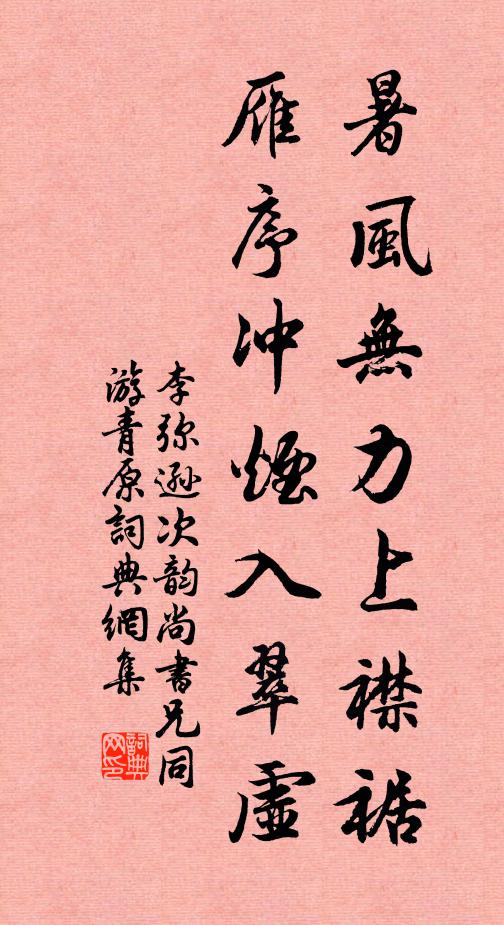 暑風無力上襟裾
雁序冲煙入翠虛
李弥遜次韵尚書兄同
游青原詞典網集
詞典網印